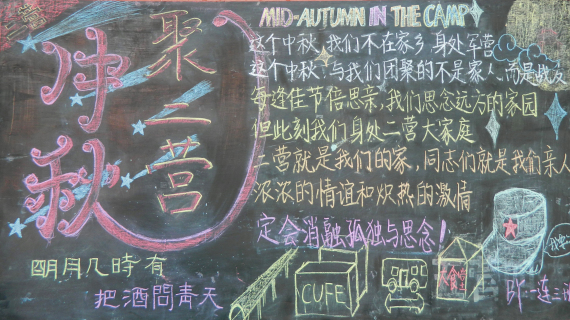 二营
中秋
聚二营
明月几時有
把酒問青天
MID-AUTUMN IN THE CAMP
这个中秋,我们不在家乡,身处军营
这个中秋,与我们团聚的不是家人,而是战友
每逢佳节倍思亲,我们思念远方的家园
但此刻我们身处二营大家庭
二营就是我们的家,同志们就是我们亲人
浓浓的情谊和炽热的激情
定会消融孤独与思念!
CUFE
大食堂
BY:一连三